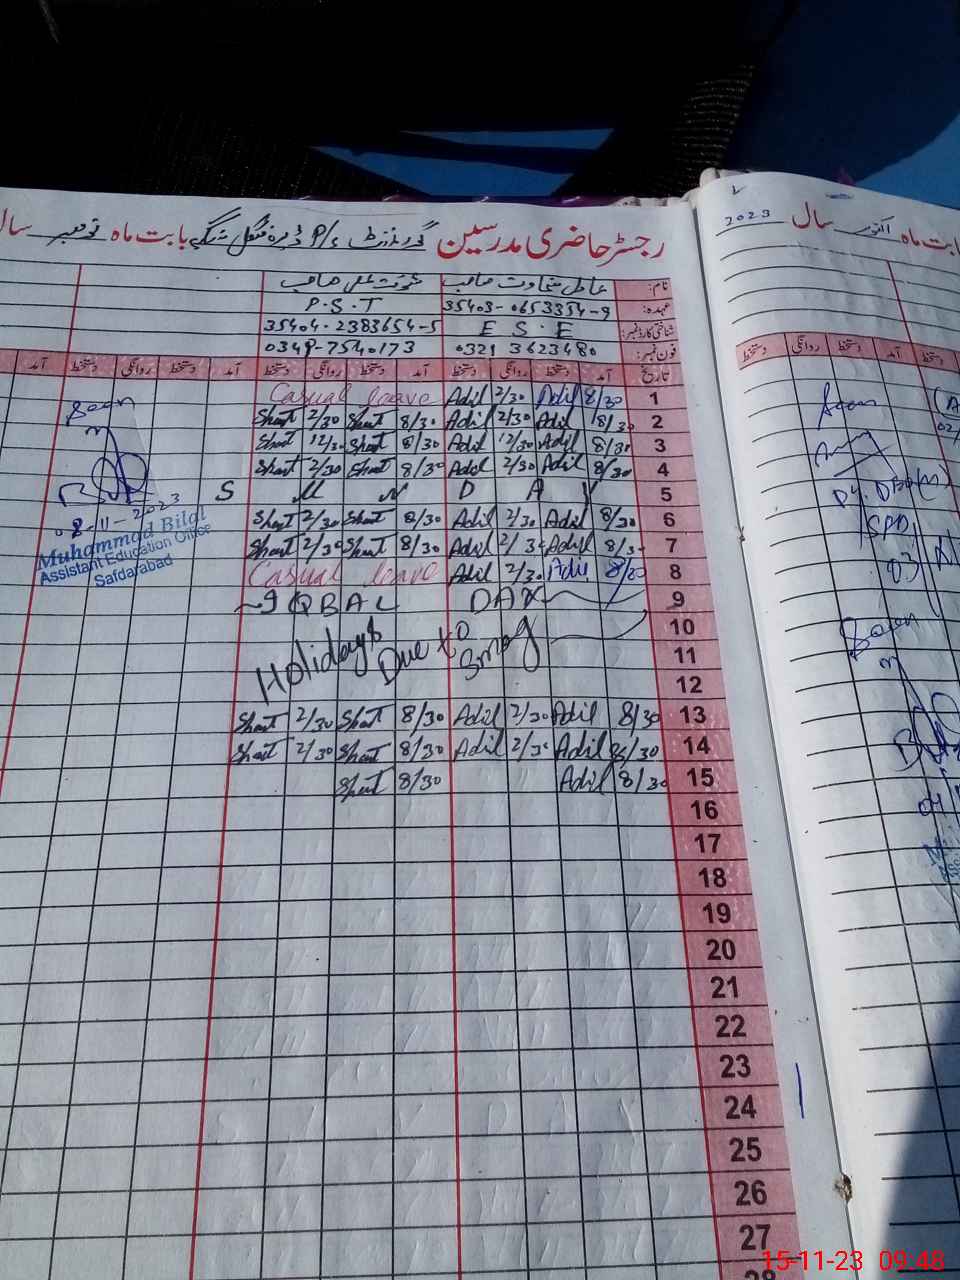 رجسٹر حاضری مدرسین گورنمنٹ P/S ڈیرہ بابت ماہ نومبر سال
نام: عادل سخاوت صاحب شوکت علی صاحب
عہدہ: 35403-0653354-9 P.S.T
شناختی کارڈ نمبر: E S.E 35404-2383654-5
فون نمبر: 0321 3623480 0349-7540173
تاریخ آمد دستخط روانگی دستخط آمد دستخط روانگی دستخط آمد دستخط روانگی دستخط آمد
Casual leave Adil 2/30 Adil 8/30 1
Shaut 2/30 Shaut 8/30 Adil 2/30 Adil 8/30 2
Shaut 12/30 Shaut 8/30 Adil 12/30 Adil 8/30 3
Shaut 2/30 Shaut 8/30 Adil 2/30 Adil 8/30 4
S U N D A Y 5
Shaut 2/30 Shaut 8/30 Adil 2/30 Adil 8/30 6
Shaut 2/30 Shaut 8/30 Adil 2/30 Adil 8/30 7
Casual leave Adil 2/30 Adil 8/30 8
IQBAL DAY 9
10
Holidays Due to Smog
11
12
Shaut 2/30 Shaut 8/30 Adil 2/30 Adil 8/30 13
Shaut 2/30 Shaut 8/30 Adil 2/30 Adil 8/30 14
Shaut 8/30 Adil 8/30 15
16
17
18
19
20
21
22
23
24
25
26
27
28
Seen
08-11-2023
Muhammad Bilal
Assistant Education Office
Safdarabad
بابت ماہ اکتوبر سال 2023
آمد دستخط روانگی دستخط
Seen
02/
Dy. DEO (M)
SPD
03
Seen
04
15-11-23 09:48